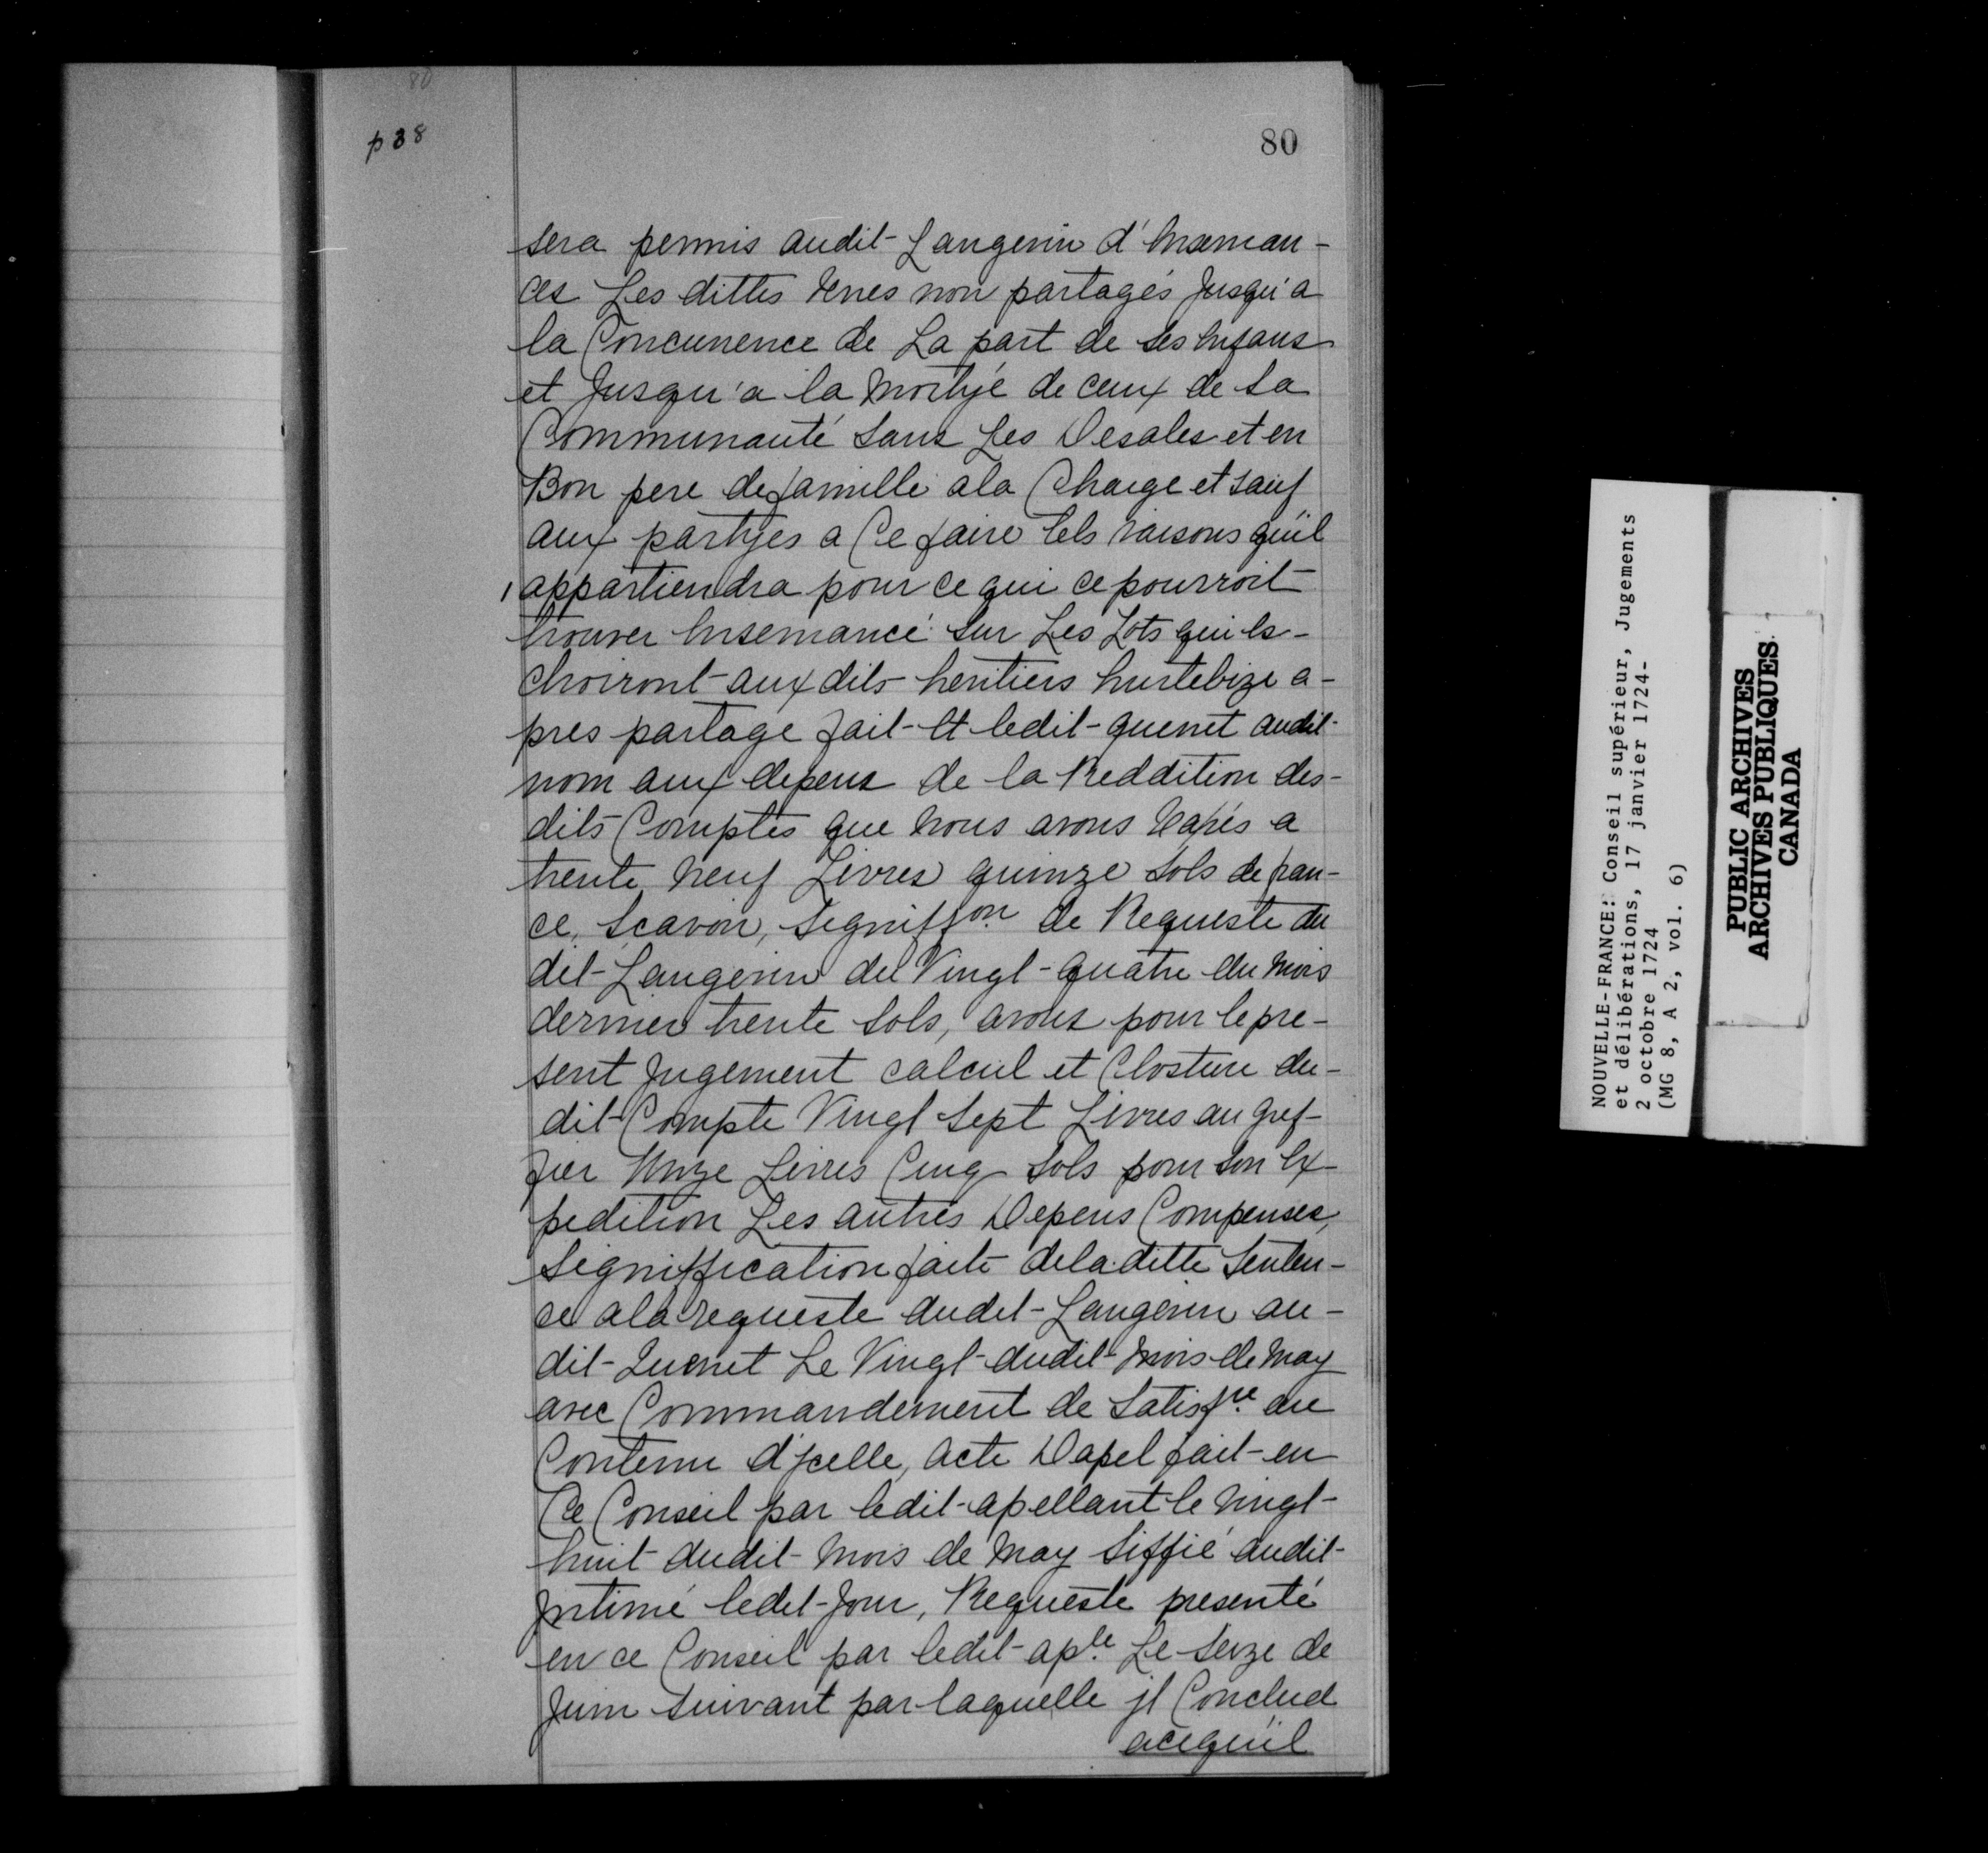 80
p 38
80
sera permis audit Langevin d'Inseman-
ces Les dittes terres non partagés Jusqu'a
la Concurrence de La part de ses Enfans
et Jusqu'a la Moityé de ceux de sa
Communauté sans Les Desoles et en
Bon pere de famille ala Charge et sauf
aux partyes a Ce faire tels raisons qu'il
appartiendra pour ce qui ce pourroit
trouver Insemancé sur Les Lots qui es-
choiront aux dits heritiers hurtebize a-
pres partage fait Et ledit quenet audit
nom aux depens de la Reddition des-
dits Comptes que Nous avons taxés a
trente Neuf Livres quinze sols de fran-
ce, Scavoir, Signiffon. de Requeste du
dit Langevin du Vingt-quatre du Mois
dernier trente sols, avous pour le pre-
sent Jugement calcul et Closture du-
dit Compte Vingt Sept Livres au gref-
fier Unze Livres Cinq sols pour son ex-
pedition Les autres Depens Compensez,
Signiffication faite deladitte Senten-
ce ala requeste dudit Langevin au-
dit Quenet Le Vingt dudit Mois de May
avec Commandement de Satisfre. au
Contenu d'jcelle, Acte Dapel fait en
Ce Conseil par ledit apellant le Vingt
huit dudit Mois de May Siffié audit
Jntimé ledit Jour, Requeste presenté
en ce Conseil par ledit aple. Le Seize de
Juin Suivant par laquelle jl Conclud
acequ'il
NOUVELLE-FRANCE: Conseil supérieur, Jugements
et délibérations, 17 janvier 1724-
2 octobre 1724
(MG 8, A 2, vol. 6)
PUBLIC ARCHIVES
ARCHIVES PUBLIQUES
CANADA